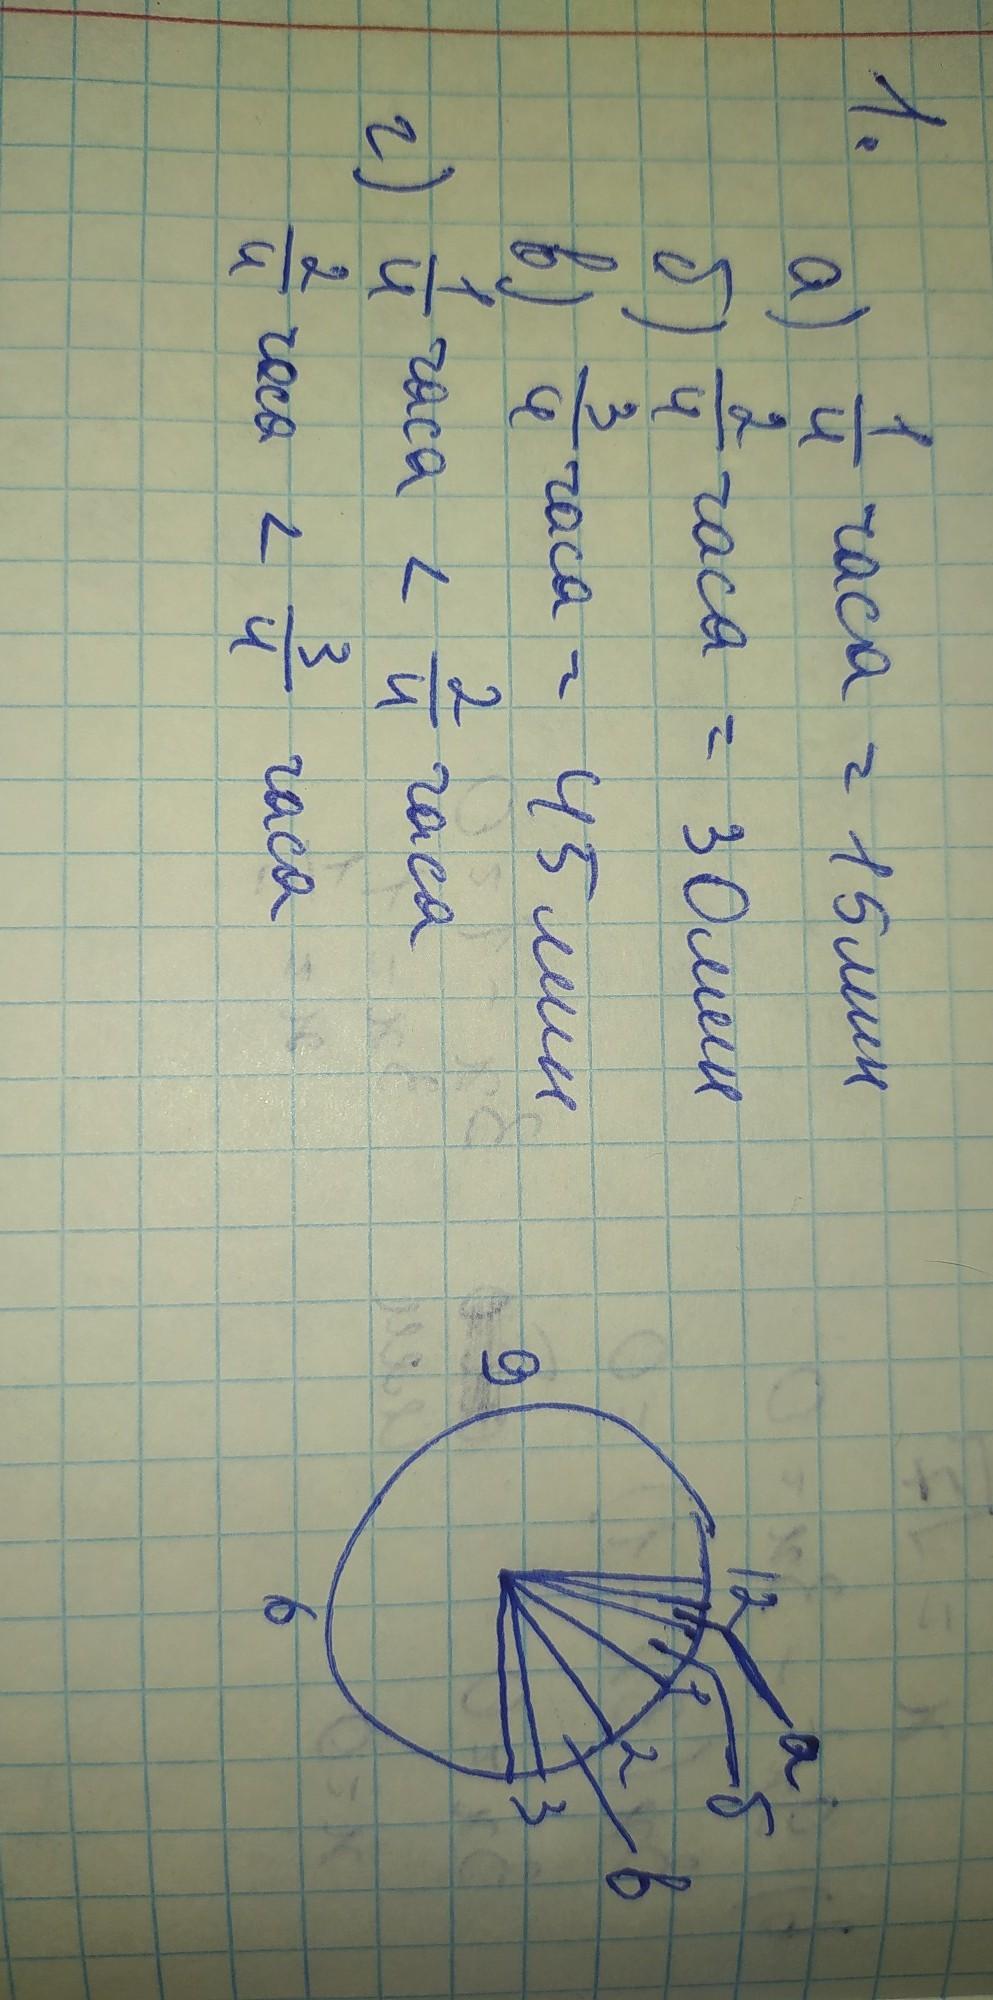 1.
а) 1/4 часа = 15мин
б) 2/4 часа = 30мин
в) 3/4 часа = 45мин
г) 1/4 часа < 2/4 часа
2/4 часа < 3/4 часа
12
а
1
б
2
в
9
3
6